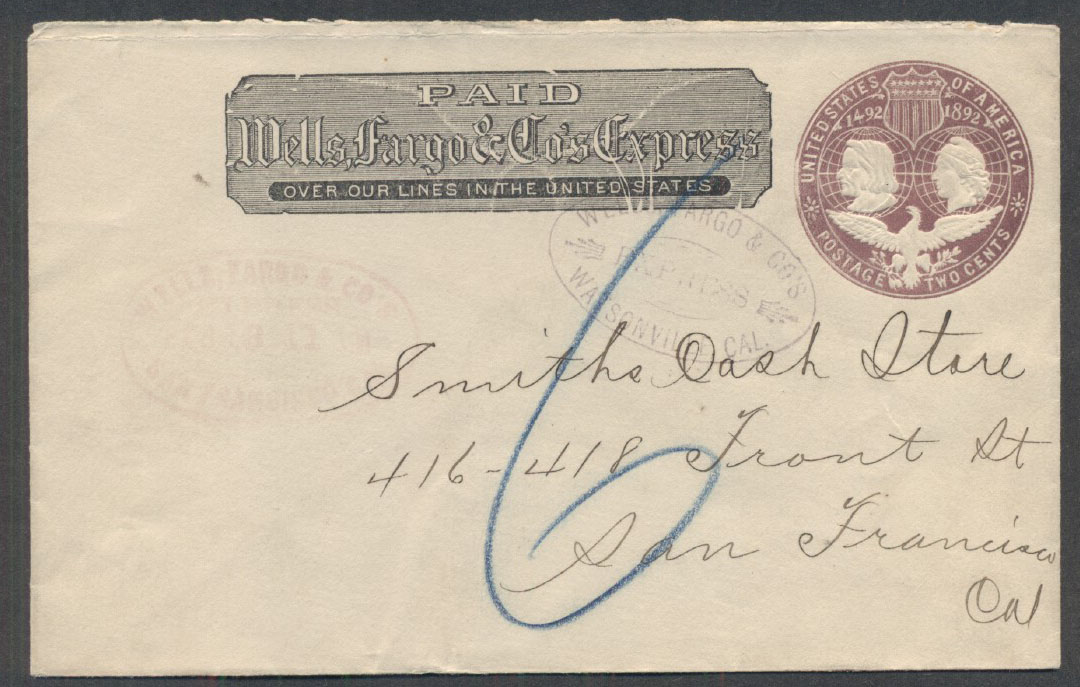 PAID
Wells, Fargo & Co's Express
OVER OUR LINES IN THE UNITED STATES
UNITED STATES OF AMERICA
1492 1892
POSTAGE TWO CENTS
WELLS FARGO & CO'S
EXPRESS
WATSONVILLE, CAL.
FARGO & CO'S
Smiths Cash Store
416-418 Front St
San Francisco
Cal
6